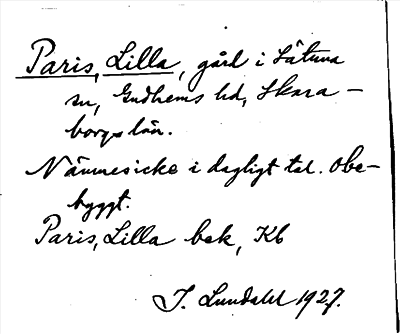 Paris, Lilla, gård i Låtuna
sn, Gudhems hd, Skara-
borgs län.
i dagligt tal. Obe-
byggt.
Paris, Lilla bek, Kb
J. Lundahl 1927.